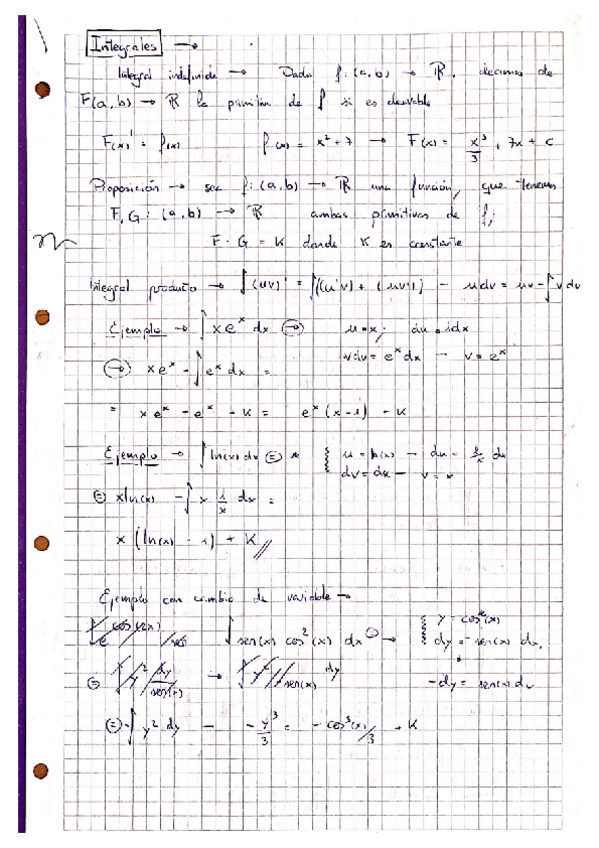 Integrales →
Integral indefinida → Dada f: (a,b) → ℝ, decimos de
F(a,b) → ℝ la primitiva de f si es derivable
F(x)' = f(x) f(x) = x² + 7 → F(x) = x³/3 + 7x + c
Proposición → sea f: (a,b) → ℝ una función, que tenemos
F, G: (a,b) → ℝ ambas primitivas de f,
F - G = K donde K es constante
Integral producto → ∫(uv)' = ∫((u'v) + (uv')) - udv = uv - ∫v du
Ejemplo → ∫ x eˣ dx (→) u = x; du = 1dx
(→) x eˣ - ∫ eˣ dx = vdv = eˣ dx - v = eˣ
= x eˣ - eˣ - K = eˣ (x-1) - K
Ejemplo → ∫ ln(x) dx (=) * u = ln(x) - du = 1/x dx
(=) x ln(x) - ∫ x 1/x dx = dv = dx - v = x
x (ln(x) - 1) + K //
Ejemplo con cambio de variable →
∫ sen(x) cos² (x) dx (=) → y = cos(x)
dy = -sen(x) dx,
-dy = sen(x) dx
(=) -∫ y² dy - -y³/3 = -cos³(x)/3 + K